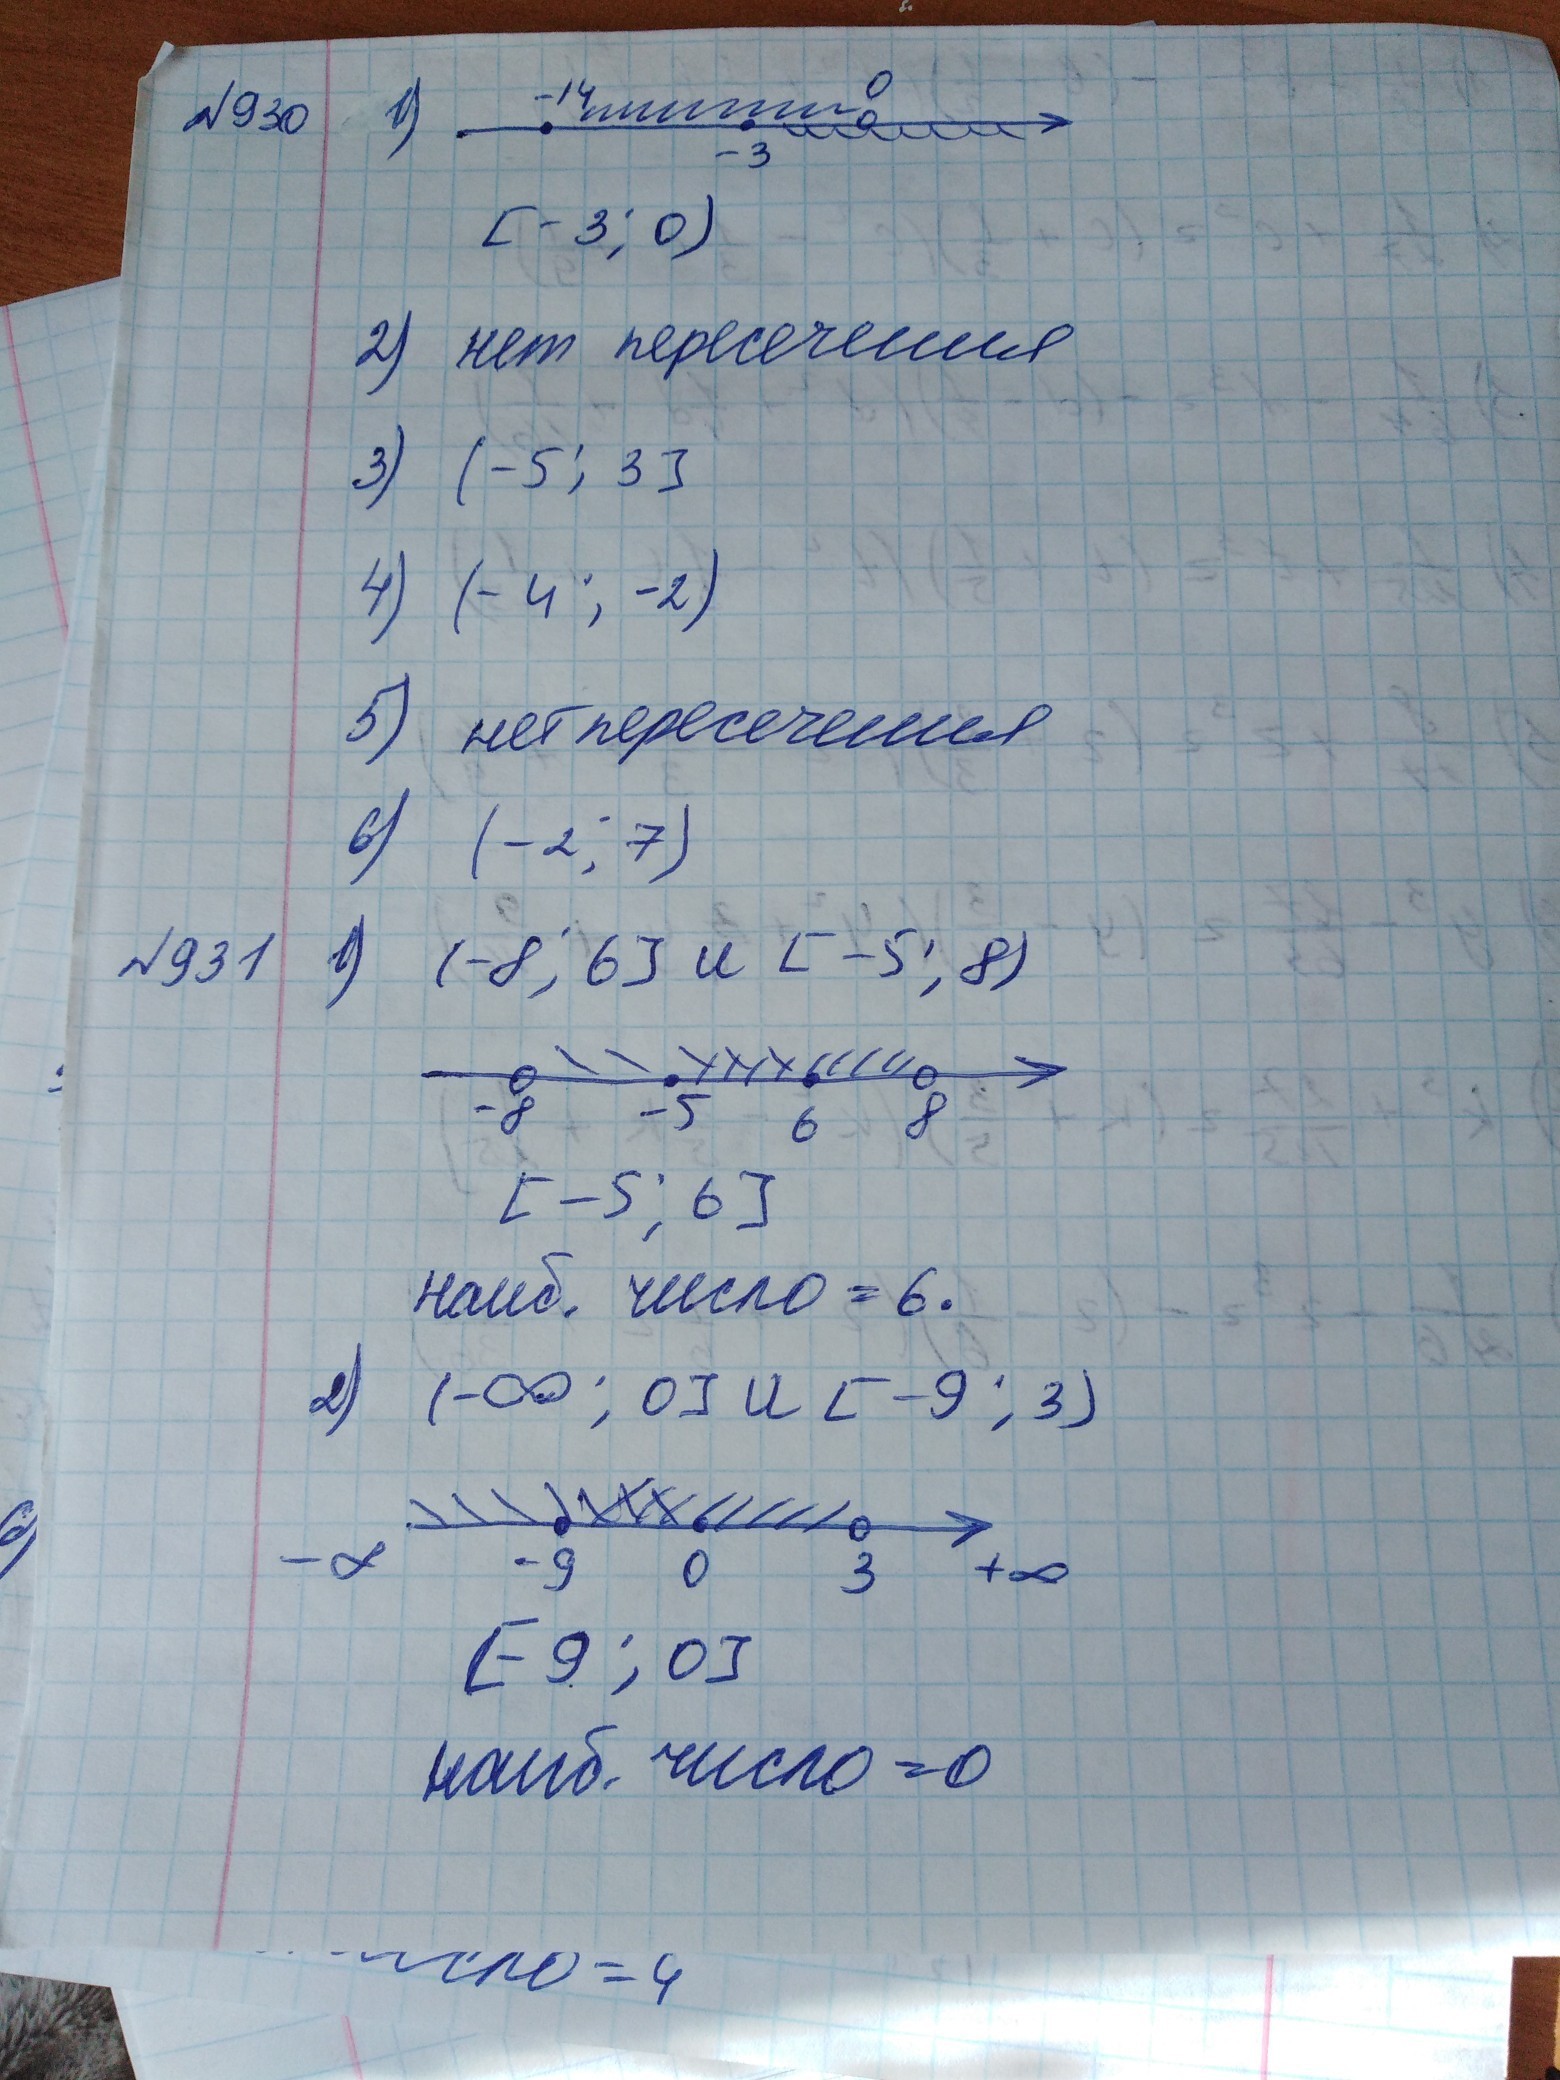 №930 1) -14 0
-3
[-3; 0)
2) нет пересечения
3) (-5; 3]
4) (-4; -2)
5) нет пересечения
6) (-2; 7)
№931 1) (-8; 6] и [-5; 8)
-8 -5 6 8
[-5; 6]
наиб. число = 6.
2) (-∞; 0] и [-9; 3)
-∞ -9 0 3 +∞
[-9; 0]
наиб. число = 0
число = 4